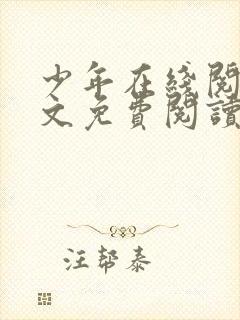 少年在线阅
文免費閱讀
汪帮泰